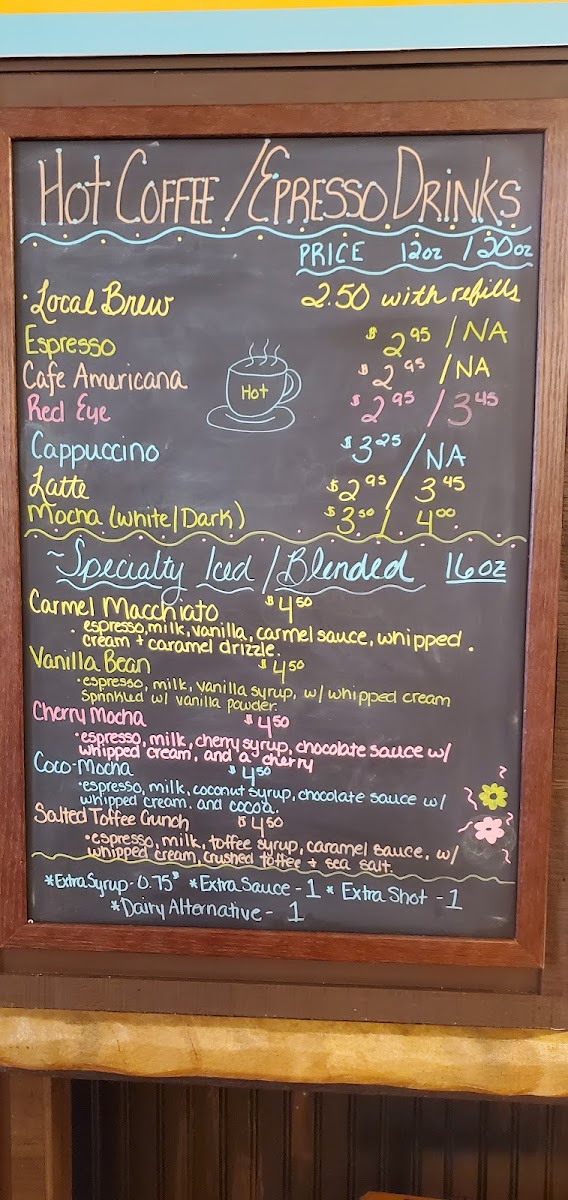 Hot Coffee / Epresso Drinks
PRICE 12oz / 20oz
· Local Brew 2.50 with refills
Espresso $2.95 / NA
Cafe Americana $2.95 / NA
Red Eye $2.95 / 3.45
Hot
Cappuccino $3.25 / NA
Latte $2.95 / 3.45
Mocha (White/Dark) $3.50 / 4.00
~Specialty Iced / Blended 16oz
Carmel Macchiato $4.50
· espresso, milk, vanilla, carmel sauce, whipped.
cream + caramel drizzle.
Vanilla Bean $4.50
·espresso, milk, vanilla syrup, w/ whipped cream
Sprinkled w/ vanilla powder.
Cherry Mocha $4.50
·espresso, milk, cherry syrup, chocolate sauce w/
whipped cream, and a cherry
Coco-Mocha $4.50
·espresso, milk, coconut syrup, chocolate sauce w/
whipped cream. and cocoa.
Salted Toffee Crunch $4.50
·espresso, milk, toffee syrup, caramel sauce, w/
whipped cream, crushed toffee + sea salt.
*Extra Syrup - 0.75 *Extra Sauce - 1 * Extra Shot - 1
*Dairy Alternative - 1